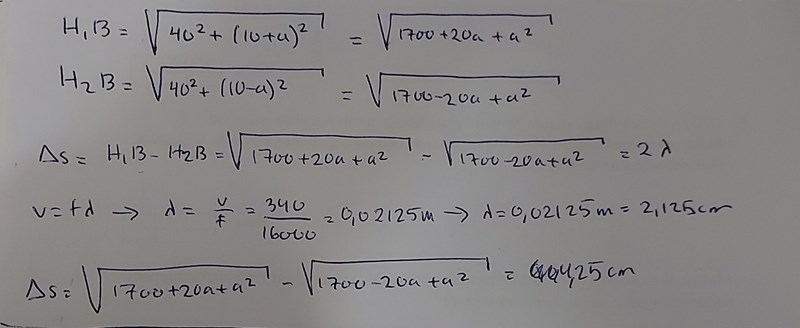 H₁B = √(40² + (10+a)²) = √(1700+20a+a²)
H₂B = √(40² + (10-a)²) = √(1700-20a+a²)
Δs = H₁B - H₂B = √(1700+20a+a²) - √(1700-20a+a²) = 2λ
v=fλ → λ = v/f = 340/16000 = 0,02125m → λ=0,02125m = 2,125cm
Δs = √(1700+20a+a²) - √(1700-20a+a²) = 4,25cm